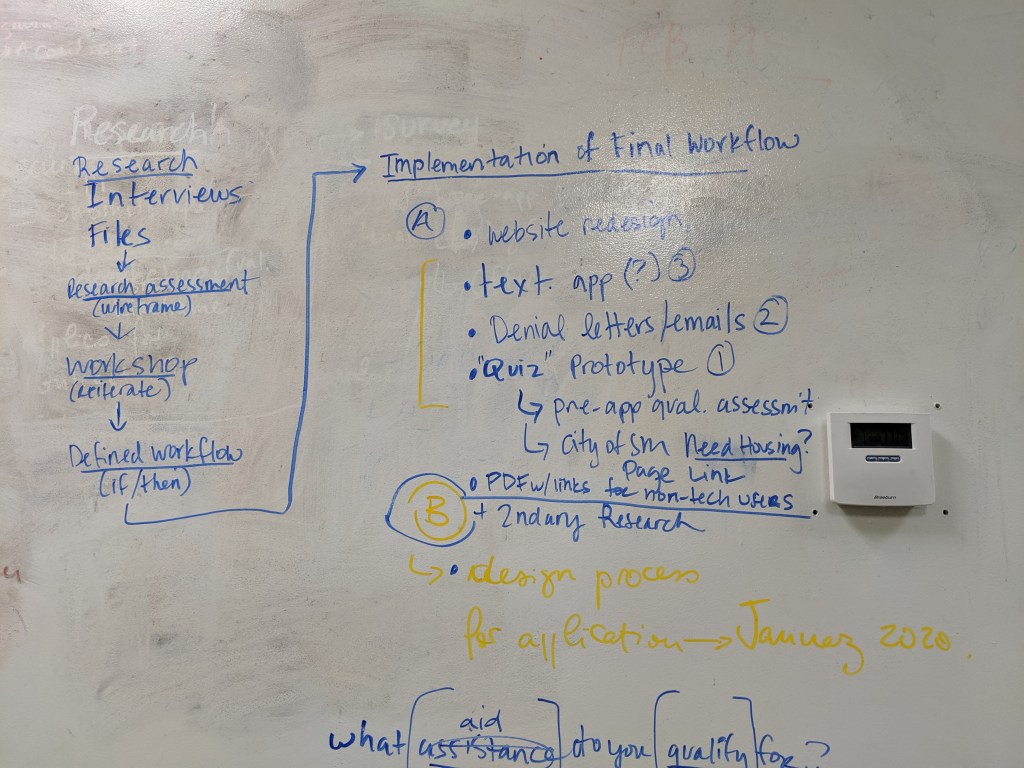 Research
Research
Interviews
Files
↓
Research assessment
(wireframe)
↓
workshop
(reiterate)
↓
Defined workflow
(if/then)
survey
→ Implementation of Final Workflow
Ⓐ • website redesign
• text. app (?) ③
• Denial letters/emails ②
• "Quiz" Prototype ①
↳ pre-app qual. assessm't
↳ City of SM Need Housing?
Page Link
• PDF w/links for non-tech users
Ⓑ + 2ndary Research
↳ • design process
for application → January 2020.
aid
what [assistance] do you [qualify] for?